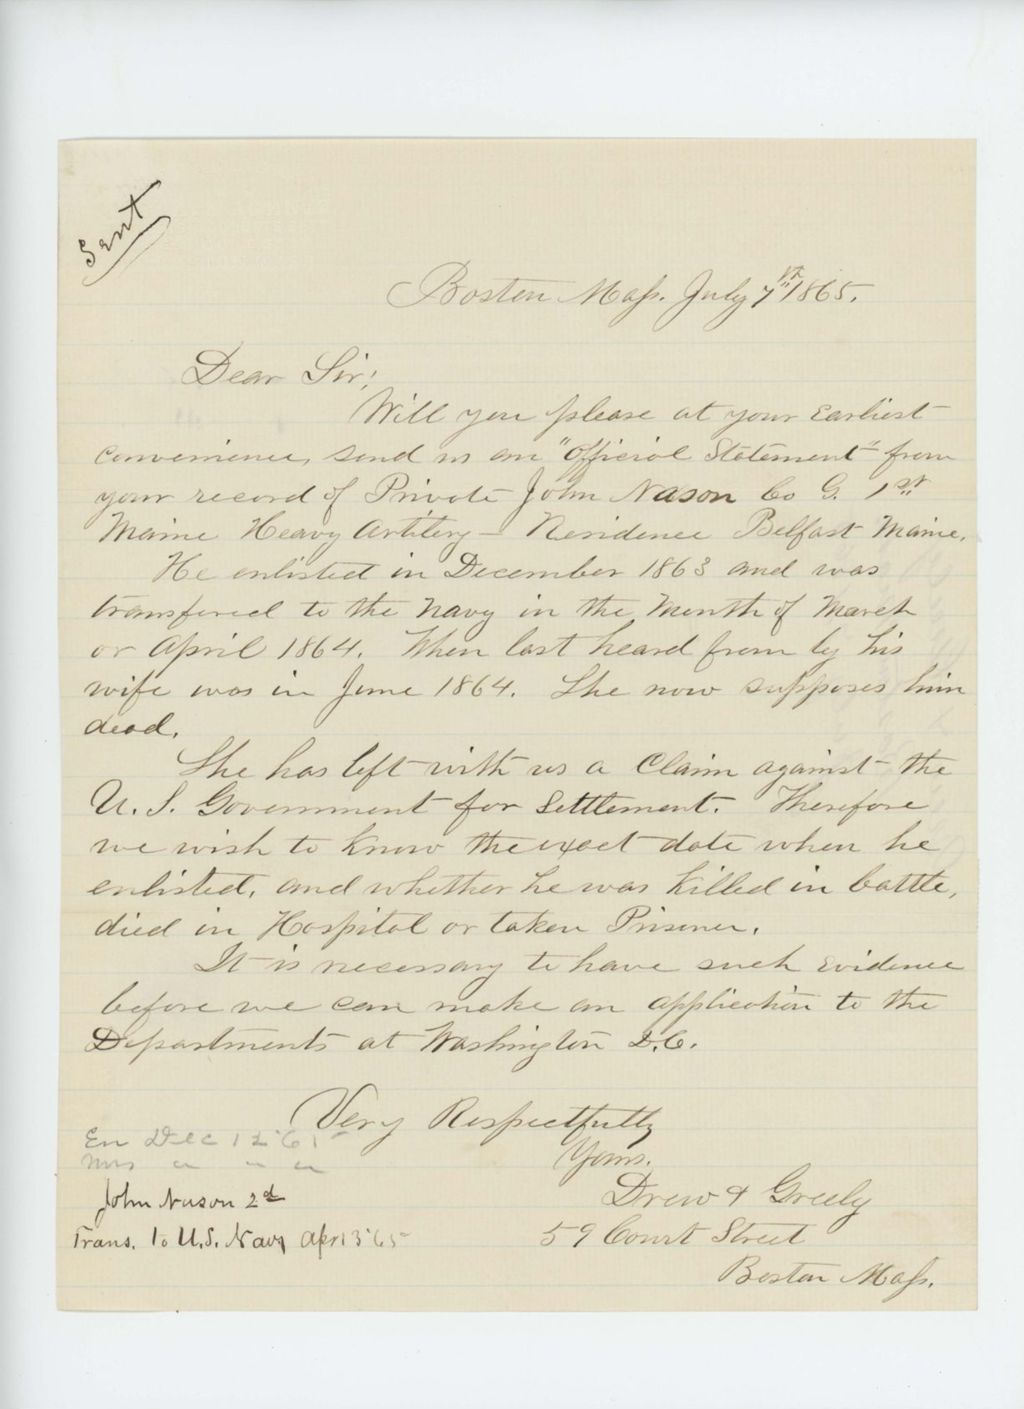 Sent
Boston Mass. July 7th 1865.
Dear Sir;
Will you please at your Earliest
Convenience, send us an "Official Statement" from
your record of Private John Nason Co G. 1st
Maine Heavy Artilery — Residence Belfast Maine.
He enlisted in December 1863 and was
transfered to the Navy in the Month of March
or April 1864. When last heard from by his
wife was in June 1864. She now supposes him
dead.
She has left with us a Claim against the
U. S. Government for Settlement. Therefore
we wish to know the exact date when he
enlisted, and whether he was killed in battle,
died in Hospital or taken Prisoner.
It is necessary to have such Evidence
before we can make an application to the
Departments at Washington D.C.
Very Respectfully
Yours.
Drew & Greely
59 Court Street
Boston Mass.
En Dec 12 '6
Mus " " "
John Nason 2d
Trans. to U.S. Navy Apr 13 '65